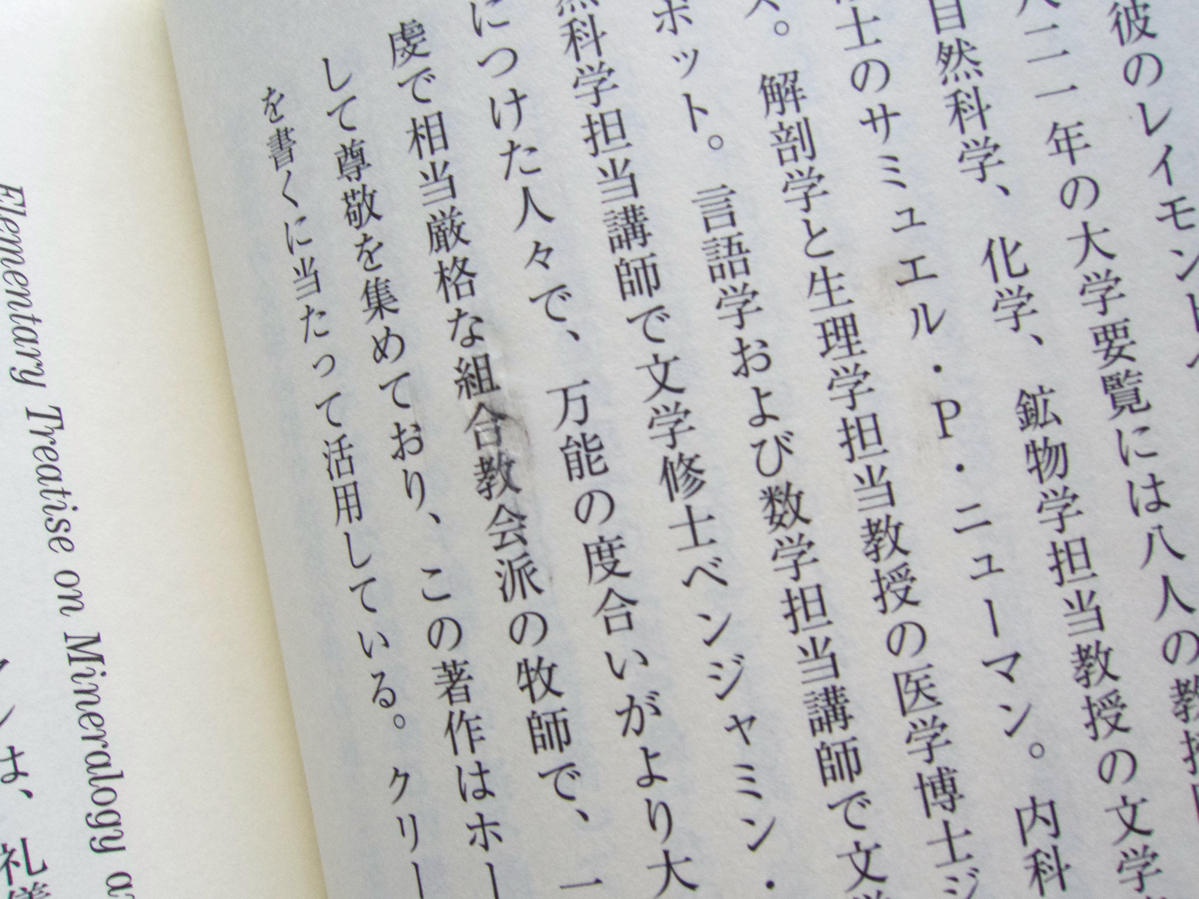 彼のレイモンド
二一年の大学要覧には八人の教授
自然科学、化学、鉱物学担当教授の文学
士のサミュエル・P・ニューマン。内科
解剖学と生理学担当教授の医学博士ジ
ボット。言語学および数学担当講師で文
然科学担当講師で文学修士ベンジャミン・
につけた人々で、万能の度合いがより大
虔で相当厳格な組合教会派の牧師で、一
して尊敬を集めており、この著作はホー
を書くに当たって活用している。クリー
Elementary Treatise on Mineralogy
ンは、礼儀